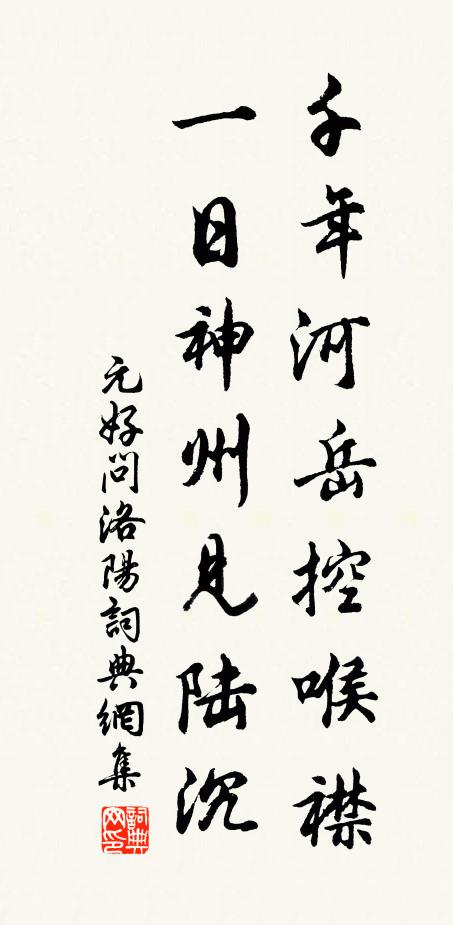 千年河岳控喉襟
一日神州见陆沉
元好问洛陽詞典網集
詞典网印